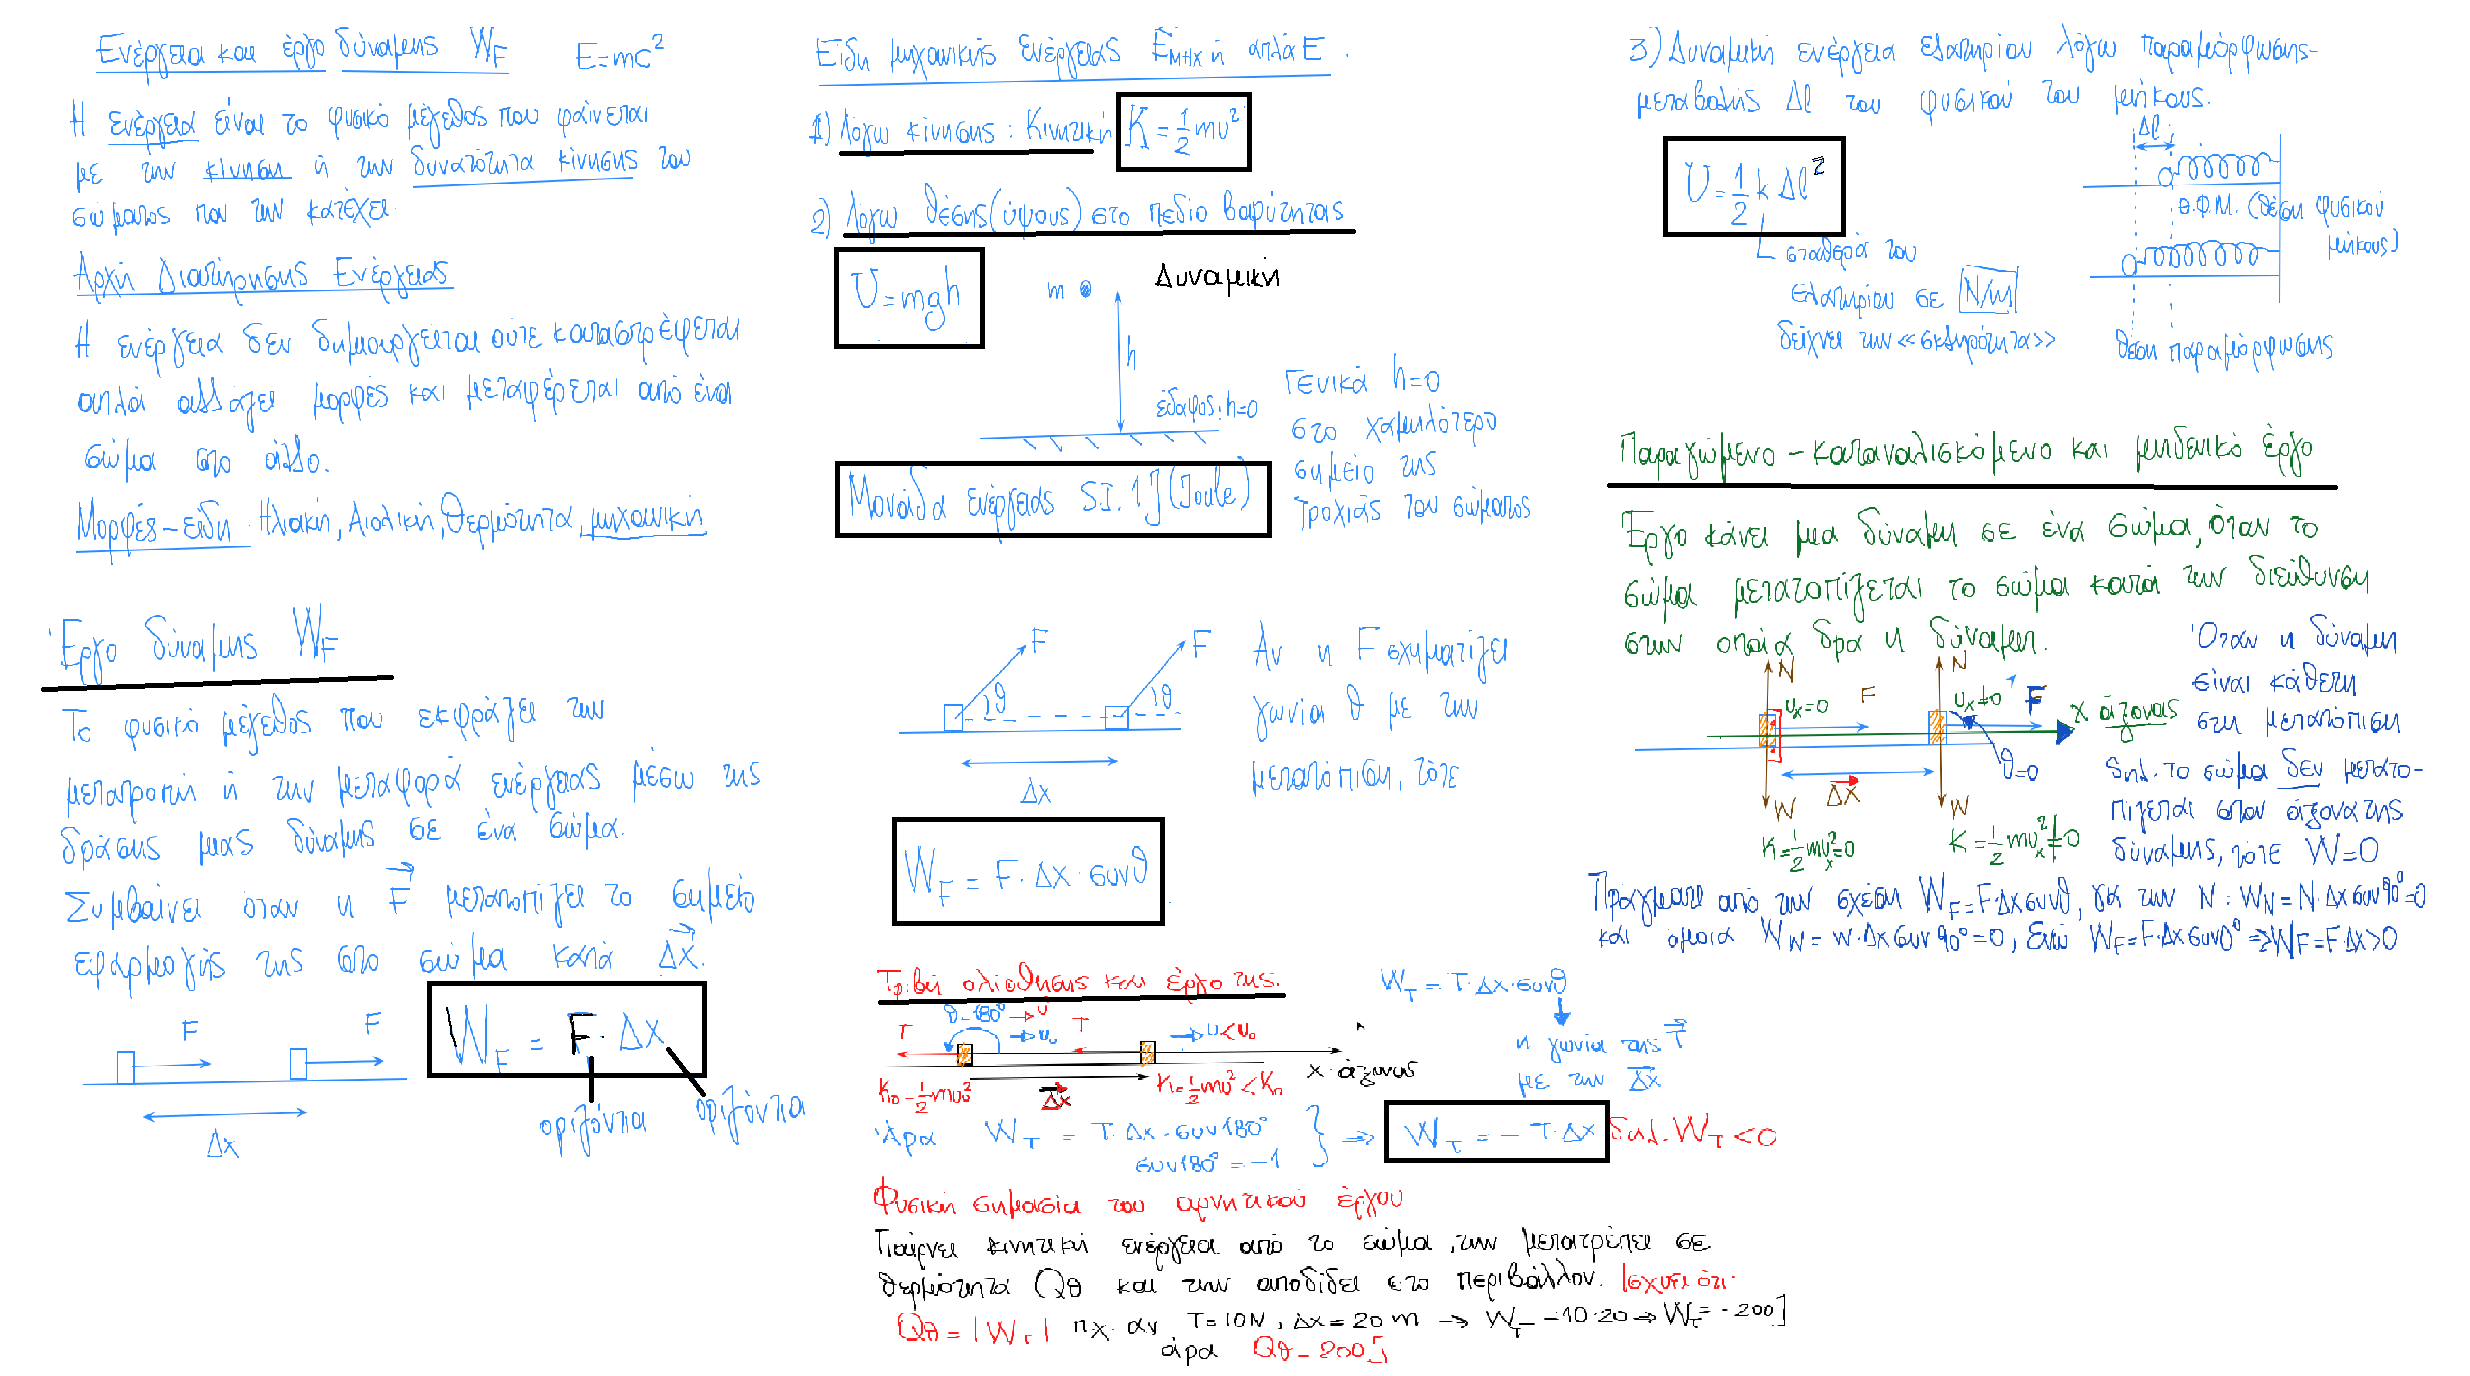 Ενέργεια και έργο δύναμης W_F E=mc²
Η ενέργεια είναι το φυσικό μέγεθος που φαίνεται
με την κίνηση ή την δυνατότητα κίνησης του
σώματος που την κατέχει.
Αρχή Διατήρησης Ενέργειας
Η ενέργεια δεν δημιουργείται ούτε καταστρέφεται
απλά αλλάζει μορφές και μεταφέρεται από ένα
σώμα στο άλλο.
Μορφές-είδη Ηλιακή, Αιολική, Θερμότητα, μηχανική
Έργο δύναμης W_F
Το φυσικό μέγεθος που εκφράζει την
μετατροπή ή την μεταφορά ενέργειας μέσω της
δράσης μιας δύναμης σε ένα σώμα.
Συμβαίνει όταν η F⃗ μετατοπίζει το σημείο
εφαρμογής της στο σώμα κατά Δx⃗.
F F
Δx
W_F = F·Δx
οριζόντια οριζόντια
Είδη μηχανικής ενέργειας E_ΜΗΧ ή απλά E.
1) Λόγω κίνησης: Κινητική K=½mυ²
2) Λόγω θέσης (ύψους) στο πεδίο βαρύτητας
U=mgh
Δυναμική
m
h
έδαφος: h=0
Γενικά h=0
στο χαμηλότερο
σημείο της
τροχιάς του σώματος
Μονάδα ενέργειας S.I. 1J (Joule)
F F
θ θ
Δx
Αν η F σχηματίζει
γωνία θ με την
μετατόπιση, τότε
W_F = F·Δx·συνθ
Τριβή ολίσθησης και έργο της.
θ=180° υ
T υ₀ T υ<υ₀
x άξονας
K₀=½mυ₀² Δx⃗ K=½mυ²<K₀
W_T = T·Δx·συνθ
η γωνία της T⃗
με την Δx⃗
Άρα W_T = T·Δx·συν180°
συν180°=-1
} ⇒ W_T = -T·Δx δηλ. W_T<0
Φυσική σημασία του αρνητικού έργου
Παίρνει κινητική ενέργεια από το σώμα, την μετατρέπει σε
θερμότητα Qθ και την αποδίδει στο περιβάλλον. Ισχύει ότι:
Qθ=|W_T| πχ. αν T=10N, Δx=20m → W_T=-10·20⇒W_T=-200J
άρα Qθ=200J
3) Δυναμική ενέργεια ελατηρίου λόγω παραμόρφωσης-
μεταβολής Δℓ του φυσικού του μήκους.
U=½kΔℓ²
σταθερά του
ελατηρίου σε N/m
δείχνει την «σκληρότητα»
Δℓ
Θ.Φ.Μ. (θέση φυσικού
μήκους)
θέση παραμόρφωσης
Παραγόμενο - καταναλισκόμενο και μηδενικό έργο
Έργο κάνει μια δύναμη σε ένα σώμα, όταν το
σώμα μετατοπίζεται το σώμα κατά την διεύθυνση
στην οποία δρα η δύναμη.
N N
υ_x=0 F υ_x≠0 F
x άξονας
Δx⃗ θ=0
W W
K=½mυ_x²=0 K=½mυ_x²≠0
Όταν η δύναμη
είναι κάθετη
στη μετατόπιση
δηλ. το σώμα δεν μετατο-
πίζεται στον άξονα της
δύναμης, τότε W=0
Πράγματι από την σχέση W_F=F·Δxσυνθ, για την N: W_N=N·Δxσυν90°=0
και όμοια W_W=W·Δxσυν90°=0, Ενώ W_F=F·Δxσυν0°⇒W_F=F·Δx>0